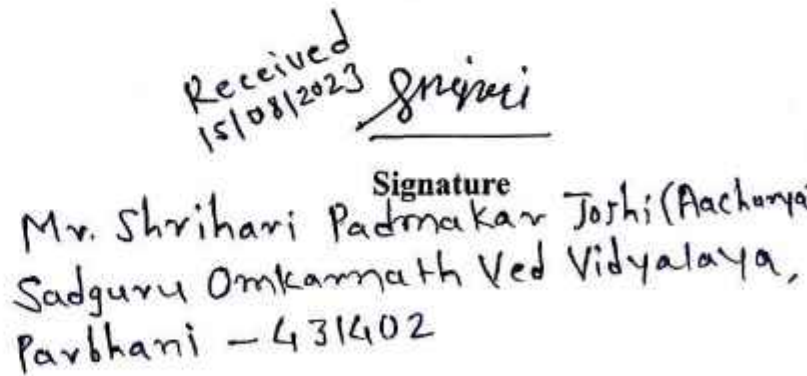 Received
15/08/2023
Signature
Mr. Shrihari Padmakar Joshi (Aacharya)
Sadguru Omkarnath Ved Vidyalaya,
Parbhani - 431402